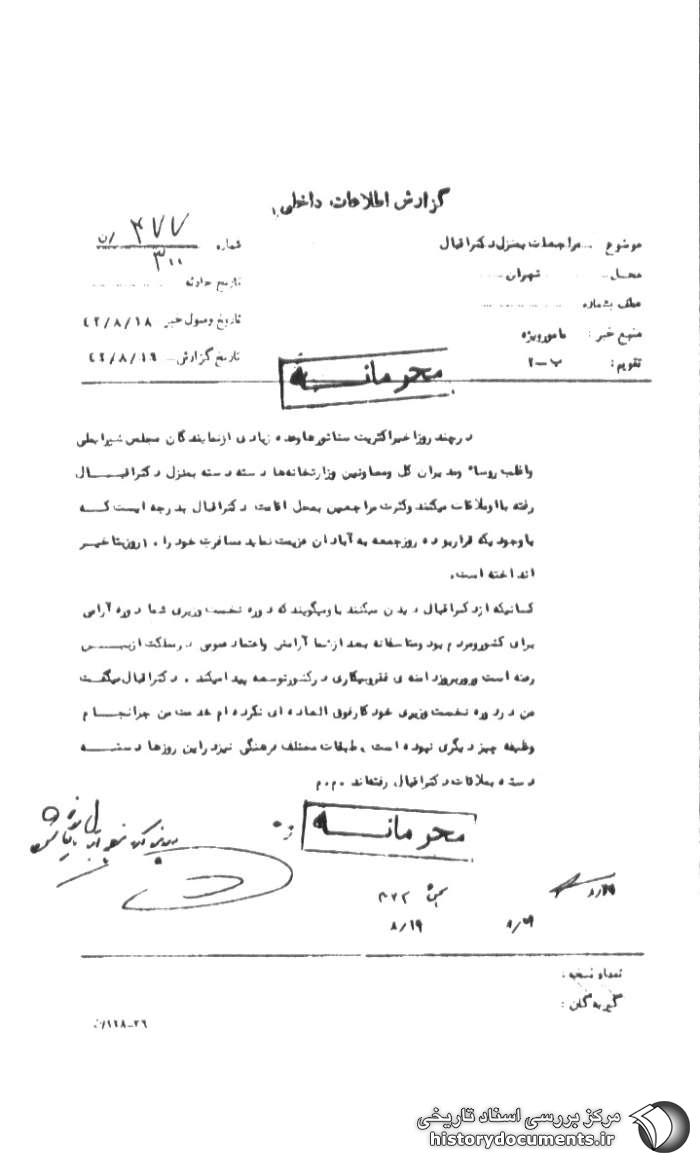 گزارش اطلاعات داخلی
موضوع ... مراجعات بمنزل دکتر اقبال
شماره ۴۷۷ / ۳۰۰ ن
محل ... تهران ...
تاریخ حادثه ...
عطف بشماره ...
تاریخ وصول خبر ۴۲/۸/۱۸
منبع خبر : مامور ویژه
تاریخ گزارش ... ۴۲/۸/۱۹
تقویم : ب-۲
محرمانه
در چند روز اخیر اکثریت سناتورها وعده زیادی از نمایندگان مجلس شورایملی
واغلب روساء ومدیران کل ومعاونین وزارتخانه‌ها دسته دسته بمنزل دکتر اقبال
رفته با او ملاقات میکنند وکثرت مراجعین بمحل اقامت دکتر اقبال بدرجه ایست که
با وجودیکه قرار بوده روز جمعه به آبادان عزیمت نماید مسافرت خود را ۱۰ روز بتاخیر
انداخته است.
کسانیکه از دکتر اقبال دیدن میکنند باو میگویند که دوره نخست وزیری شما دوره آرامی
برای کشور ومردم بود ومتاسفانه بعد از شما آرامش واعتماد عمومی در مملکت از بین
رفته است وروز بروز دامنه ی فقر وبیکاری در کشور توسعه پیدا میکند . دکتر اقبال میگفت
من در دوره نخست وزیری خود کار فوق العاده ای نکرده ام خدمت من جز انجام
وظیفه چیز دیگری نبوده است ، طبقات مختلف فرهنگی نیز در این روزها دسته
دسته بملاقات دکتر اقبال رفته‌اند .م.م
محرمانه
۸/۱۹
۸/۱۹
۸/۱۹
تعداد نسخه :
گیرندگان :
۲۶-۱۲۸/ن
مرکز بررسی اسناد تاریخی
historydocuments.ir